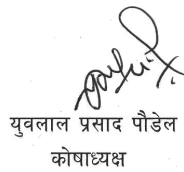 युवलाल प्रसाद पौडेल
कोषाध्यक्ष